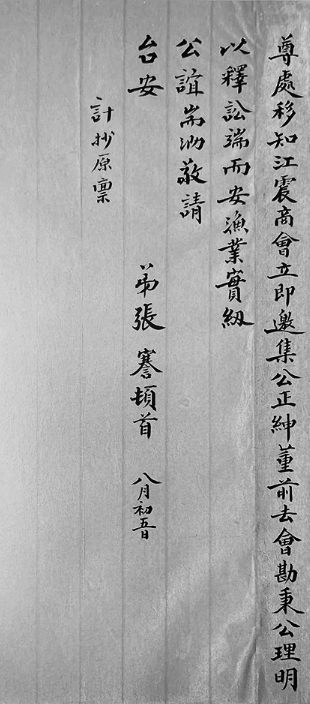 尊處移知江震商會立即邀集公正紳董前去會勘秉公理明
以釋訟端而安漁業實紉
公誼耑泐敬請
台安
弟張謇頓首 八月初五日
計抄原稟